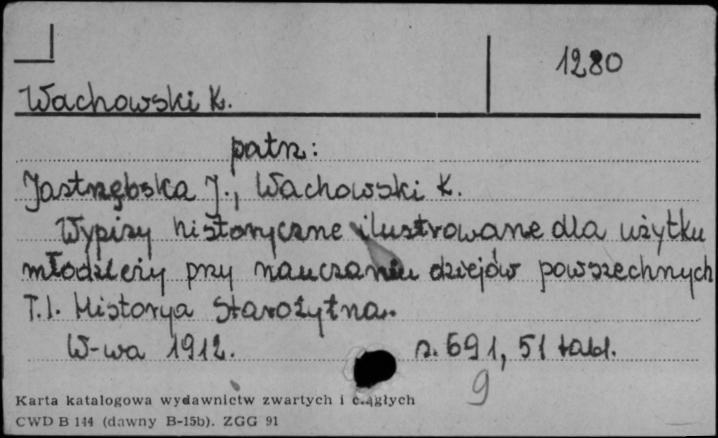 1280
Wachowski K.
patrz:
Jastrzębska J., Wachowski K.
Wypisy historyczne ilustrowane dla użytku
młodzieży przy nauczaniu dziejów powszechnych
T.I. Historya Starożytna.
W-wa 1912. s. 691, 51 tabl.
9
Karta katalogowa wydawnictw zwartych i ciągłych
CWD B 144 (dawny B-15b). ZGG 91